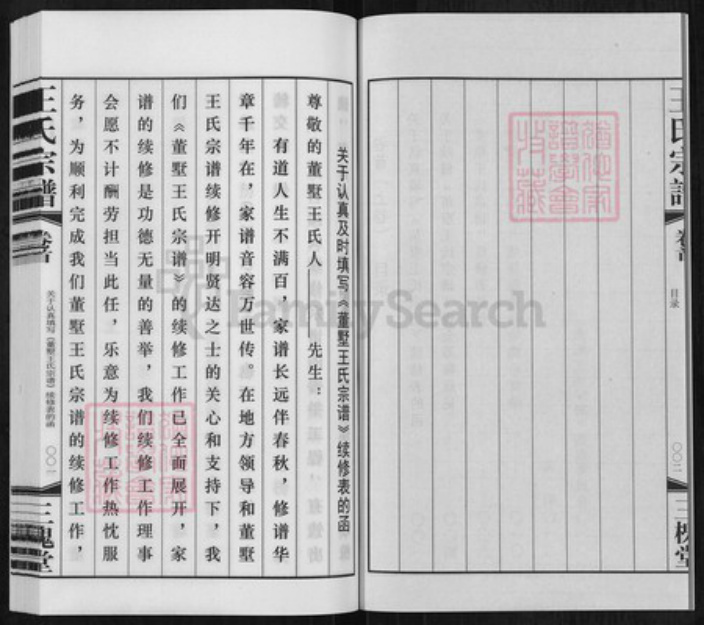 王氏宗譜
目录
〇〇二
三槐堂
关于认真及时填写《董墅王氏宗谱》续修表的函
尊敬的董墅王氏人——先生：
有道人生不满百，家谱长远伴春秋，修谱华
章千年在，家谱音容万世传。在地方领导和董墅
王氏宗谱续修开明贤达之士的关心和支持下，我
们《董墅王氏宗谱》的续修工作已全面展开，家
谱的续修是功德无量的善举，我们续修工作理事
会愿不计酬劳担当此任，乐意为续修工作热忱服
务，为顺利完成我们董墅王氏宗谱的续修工作，
王氏宗譜
关于认真填写《董墅王氏宗谱》续修表的函
〇〇一
三槐堂
FamilySearch